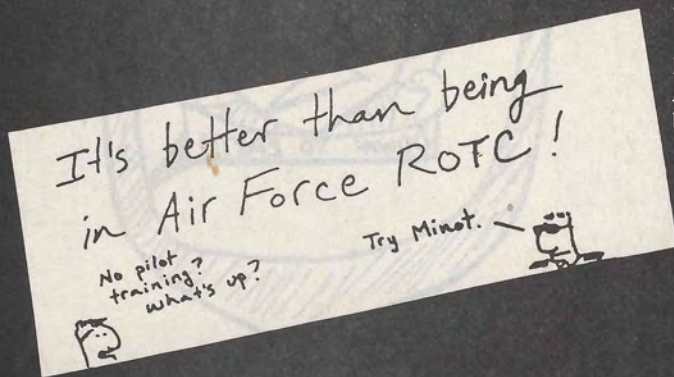 It's better than being
in Air Force ROTC!
No pilot
training?
what's up?
Try Minot.